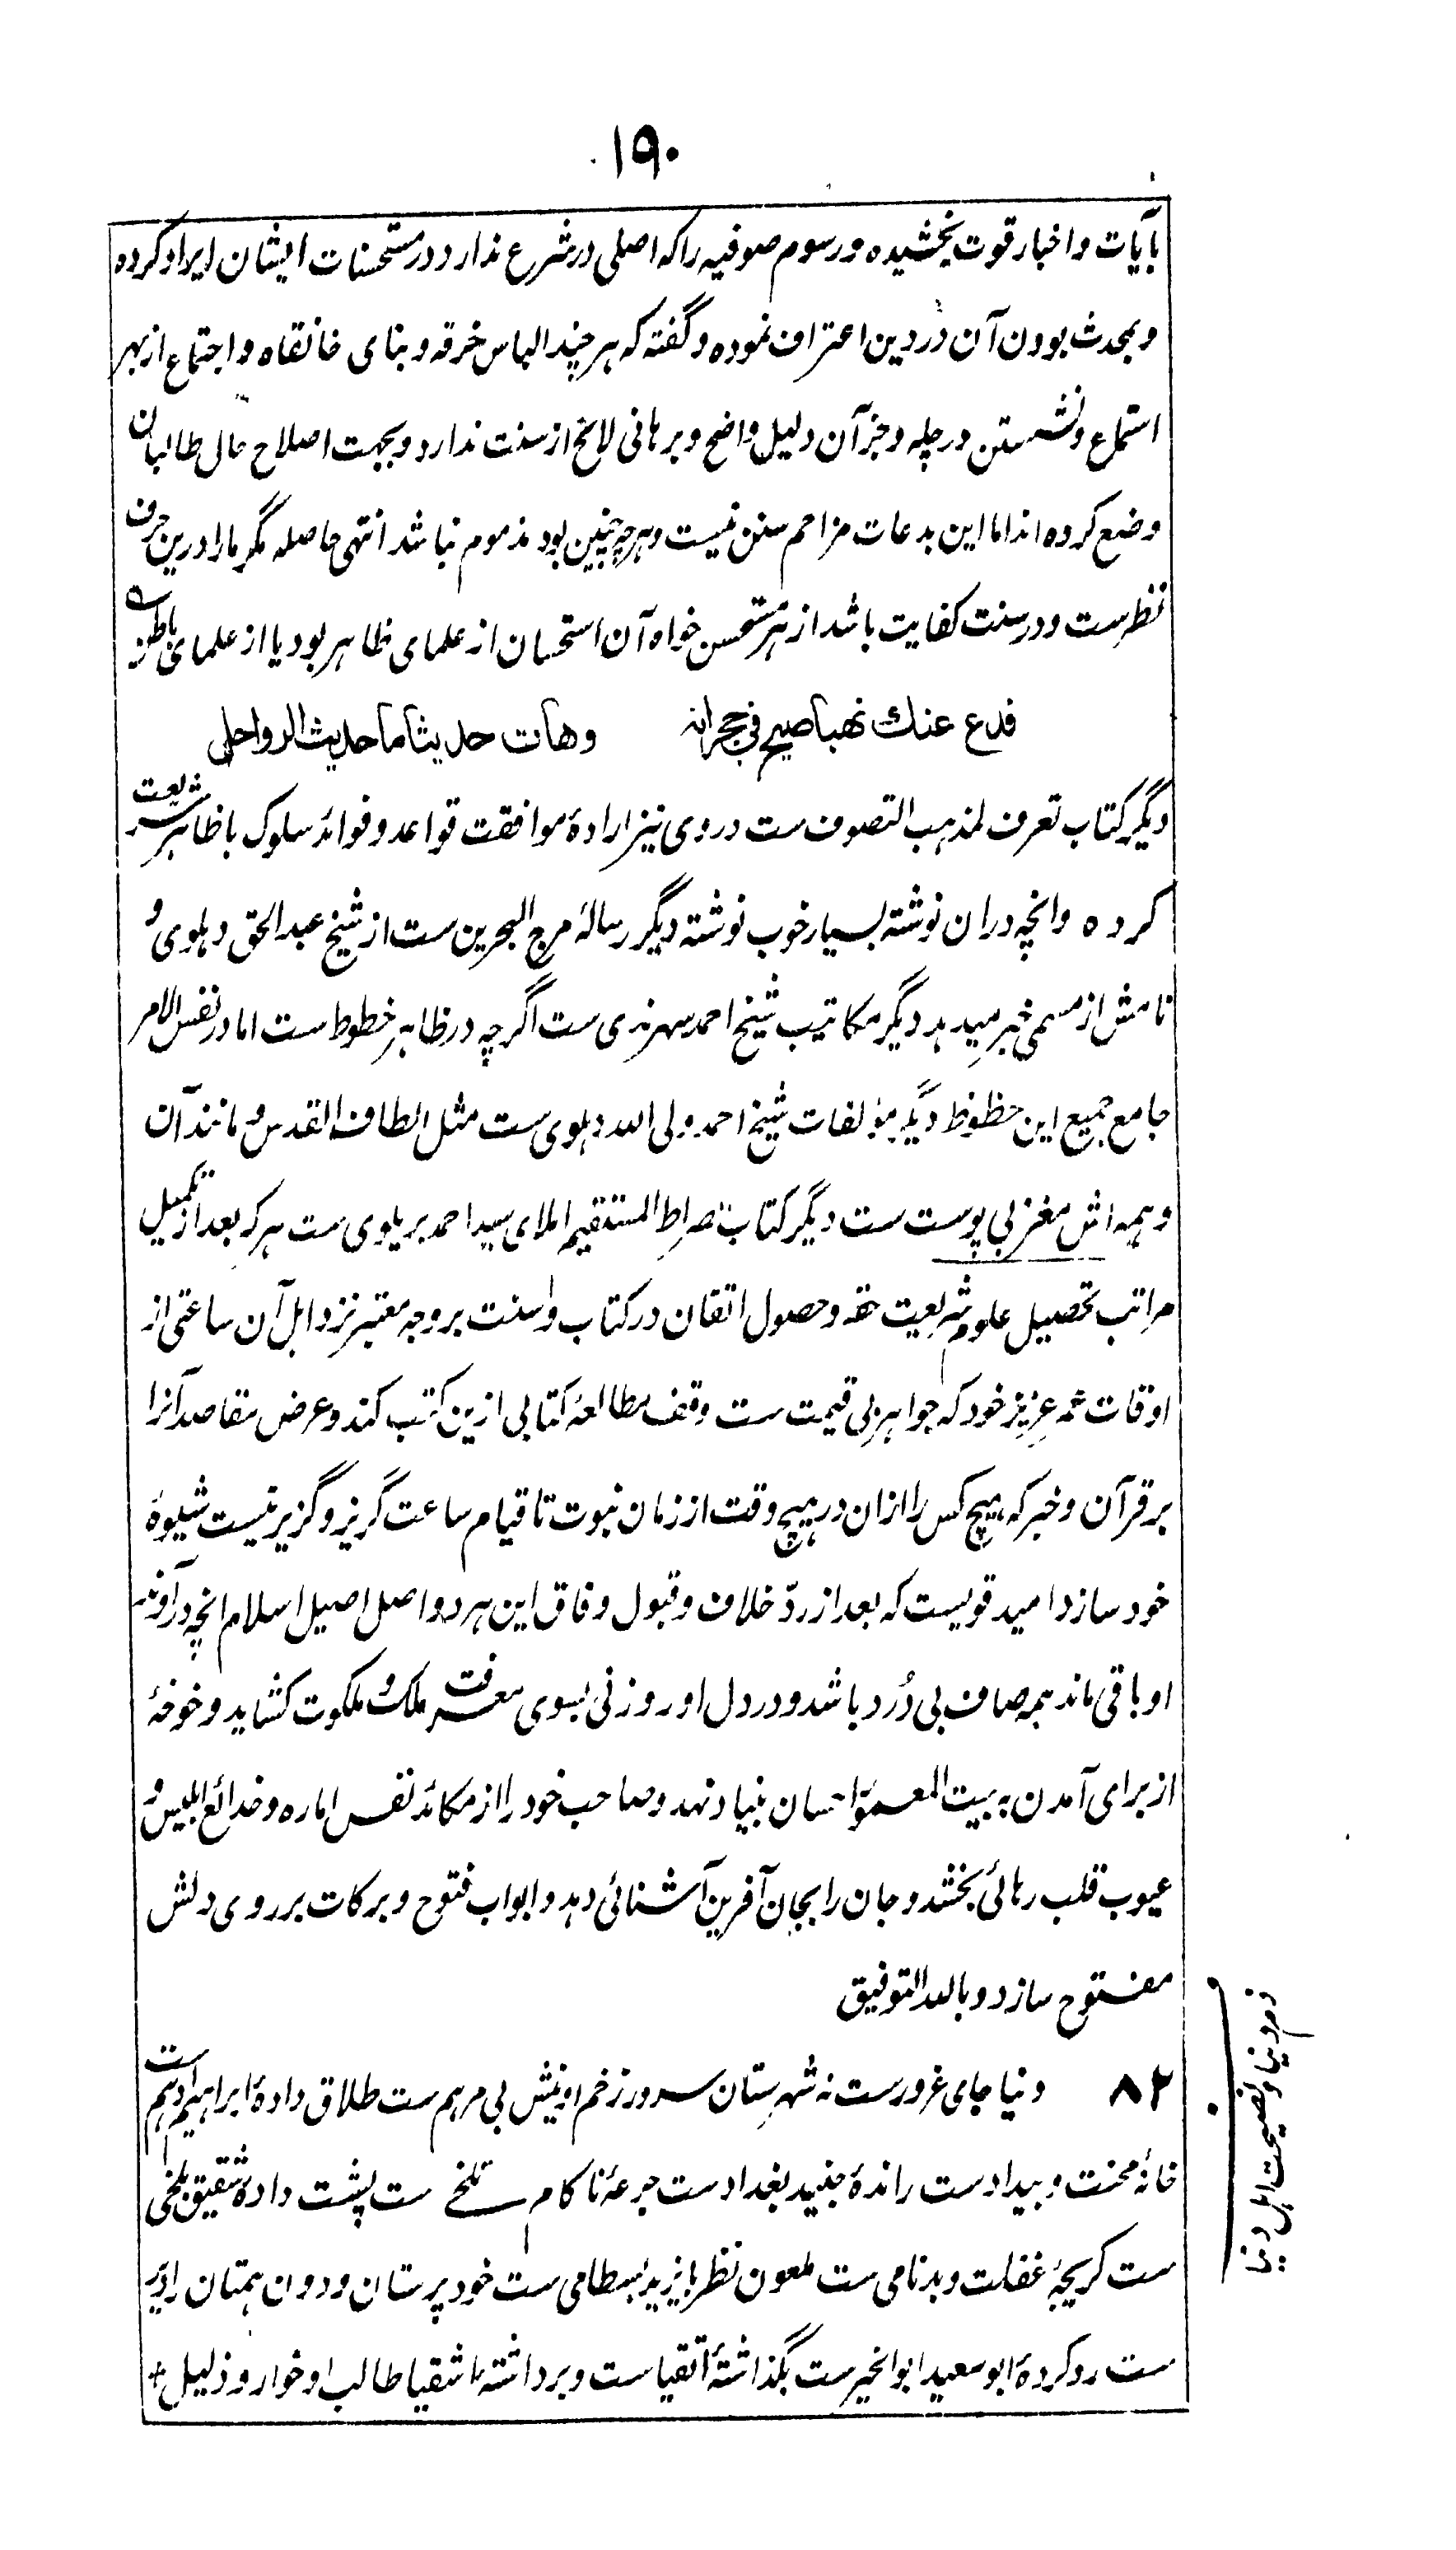 ۱۹۰
بآیات و اخبار قوت بخشیده و رسوم صوفیه را که اصلی در شرع ندارد در مستحسنات ایشان ایراد کرده
و بمحدث بودن آن در دین اعتراف نموده و گفته که هر چند الباس خرقه و بنای خانقاه و اجتماع از بهر
استماع و نشستن در چله و جز آن دلیل واضح و برهانی لائح از سنت ندارد و بجهت اصلاح حال طالبان
وضع کرده اند اما این بدعات مزاحم سنن نیست و هر چه چنین بود مذموم نباشد انتهی حاصله مگر ما را درین حرف
نظرست و در سنت کفایت باشد از هر مستحسن خواه آن استحسان از علمای ظاهر بود یا از علمای باطن
فدع عنك نهبا صيح في حجراته وهات حديثا ما حديث الرواحل
دیگر کتاب تعرف لمذهب التصوف ست در وی نیز ارادهٔ موافقت قواعد و فوائد سلوک با ظاهر شریعت
کرده وانچه دران نوشته بسیار خوب نوشته دیگر رسالهٔ مرج البحرین ست از شیخ عبدالحق دهلوی و
نامش از مسمی خبر میدهد دیگر مکاتیب شیخ احمد سهرندی ست اگرچه در ظاهر خطوط ست اما در نفس الامر
جامع جمیع این حظوظ دیگر مؤلفات شیخ احمد ولی الله دهلوی ست مثل الطاف القدس و مانند آن
و همه اش مغز بی پوست ست دیگر کتاب صراط المستقیم املای سید احمد بریلوی ست هر که بعد از تکمیل
مراتب تحصیل علوم شریعت حقه و حصول اتقان در کتاب و سنت بر وجه معتبر نزد اهل آن ساعتی از
اوقات عمر عزیز خود که جواهر بی قیمت ست وقف مطالعهٔ کتابی ازین کتب کند و عرض مقاصد آنرا
بر قرآن و خبر که هیچ کس را ازان در هیچ وقت از زمان نبوت تا قیام ساعت گریز و گزیر نیست شیوهٔ
خود سازد امید قویست که بعد از ردّ خلاف و قبول وفاق این هر دو اصل اصیل اسلام انچه در آوند
او باقی ماند همه صاف بی دُرد باشد و در دل او روزنی بسوی معرفت ملک و ملکوت کشاید و خوخهٔ
از برای آمدن به بیت المعمور احسان بنیاد نهد و صاحب خود را از مکائد نفس اماره و خدائع ابلیس و
عیوب قلب رهائی بخشد و جان را بجان آفرین آشنائی دهد و ابواب فتوح و برکات بر روی دلش
مفتوح سازد و بالله التوفیق
۸۲ دنیا جای غرورست نه شهرستان سرور زخم او نیش بی مرهم ست طلاق دادهٔ ابراهیم ادهم است
خانهٔ محنت و بیدادست راندهٔ جنید بغدادست جرعهٔ ناکام تلخ ست پشت دادهٔ شقیق بلخی
ست کریچهٔ غفلت و بدنامی ست ملعون نظر بایزید بسطامی ست خود پرستان و دون همتان را دیر
ست رد کردهٔ ابو سعید ابو الخیرست بگذاشتهٔ اتقیاست و برداشتهٔ اشقیا طالب او خوار و ذلیل +
ذم دنیا و نصیحت اهل دنیا